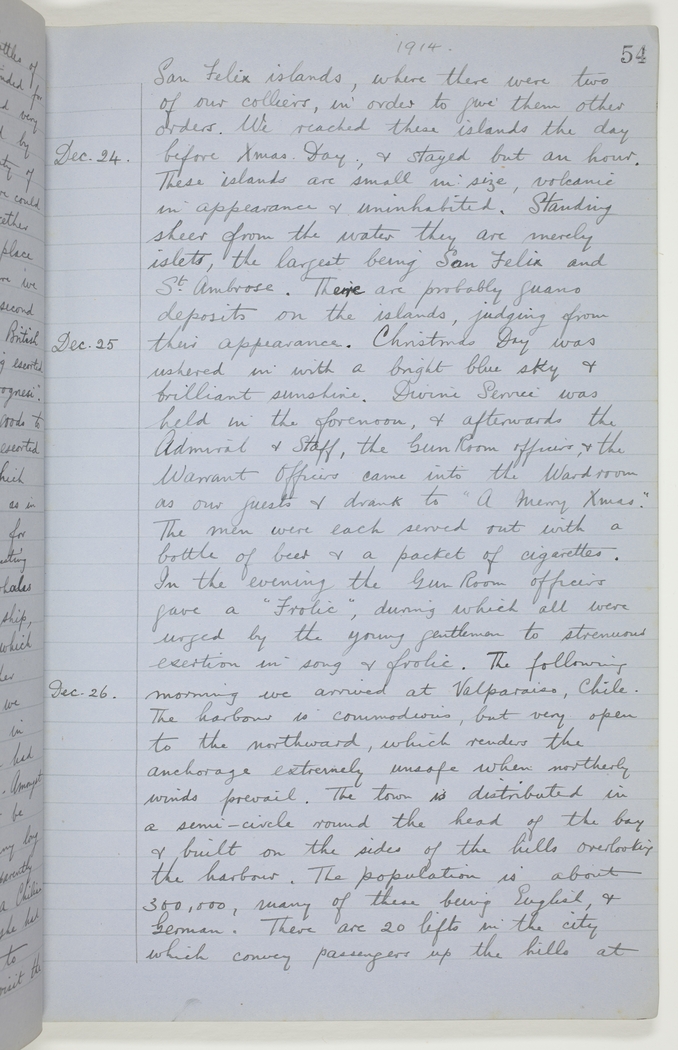 1914.
54
San Felix islands, where there were two
of our colliers, in order to give them other
orders. We reached these islands the day
Dec. 24. before Xmas. Day., & stayed but an hour.
These islands are small in size, volcanic
in appearance & uninhabited. Standing
sheer from the water they are merely
islets, the largest being San Felix and
St. Ambrose. There are probably guano
deposits on the islands, judging from
Dec. 25 their appearance. Christmas Day was
ushered in with a bright blue sky &
brilliant sunshine. Divine Service was
held in the forenoon, & afterwards the
Admiral & Staff, the Gun Room officers, & the
Warrant Officers came into the Wardroom
as our guests & drank to "A Merry Xmas."
The men were each served out with a
bottle of beer & a packet of cigarettes.
In the evening the Gun Room officers
gave a "Frolic", during which all were
urged by the young gentlemen to strenuous
exertion in song & frolic. The following
Dec. 26. morning we arrived at Valparaiso, Chile.
The harbour is commodious, but very open
to the northward, which renders the
anchorage extremely unsafe when northerly
winds prevail. The town is distributed in
a semi-circle round the head of the bay
& built on the sides of the hills overlooking
the harbour. The population is about
300,000, many of these being English, &
German. There are 20 lifts in the city
which convey passengers up the hills at